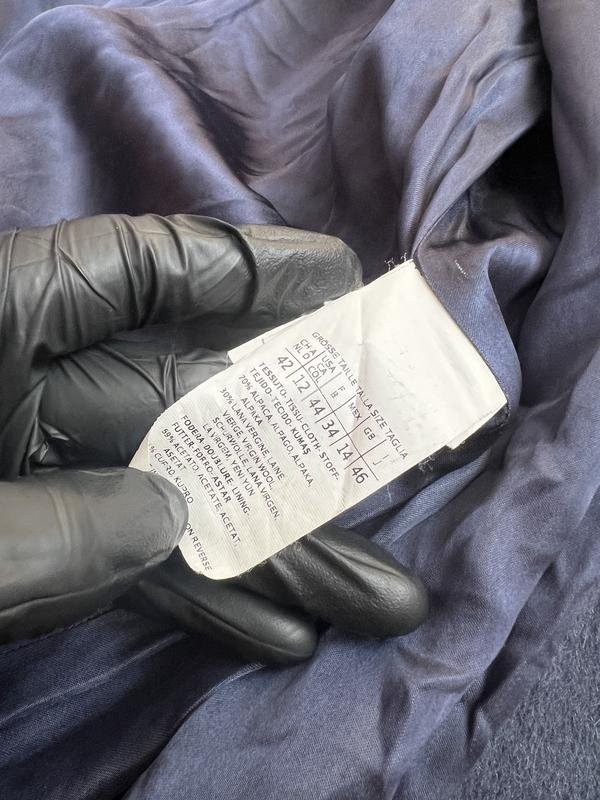 GRÖSSE TAILLE TALLA SIZE TAGLIA
CH A USA F GB I
NL D CA B MEX
COL
42 12 44 34 14 46
TESSUTO-TISSU-CLOTH-STOFF-
TEJIDO-TECIDO-KUMAŞ
70% ALPACA, ALPAGO, ALPAKA,
ALPAKA
30% LANA VERGINE, LAINE
VIERGE, VIRGIN WOOL,
SCHURWOLLE, LANA VIRGEN,
LA VIRGEM, YENI YUN
FODERA, DOUBLURE, LINING,
FUTTER-FORRO-ASTAR
59% ACETATO, ACETATE, ACETAT,
ASETAT
KUPRO
ON REVERSE